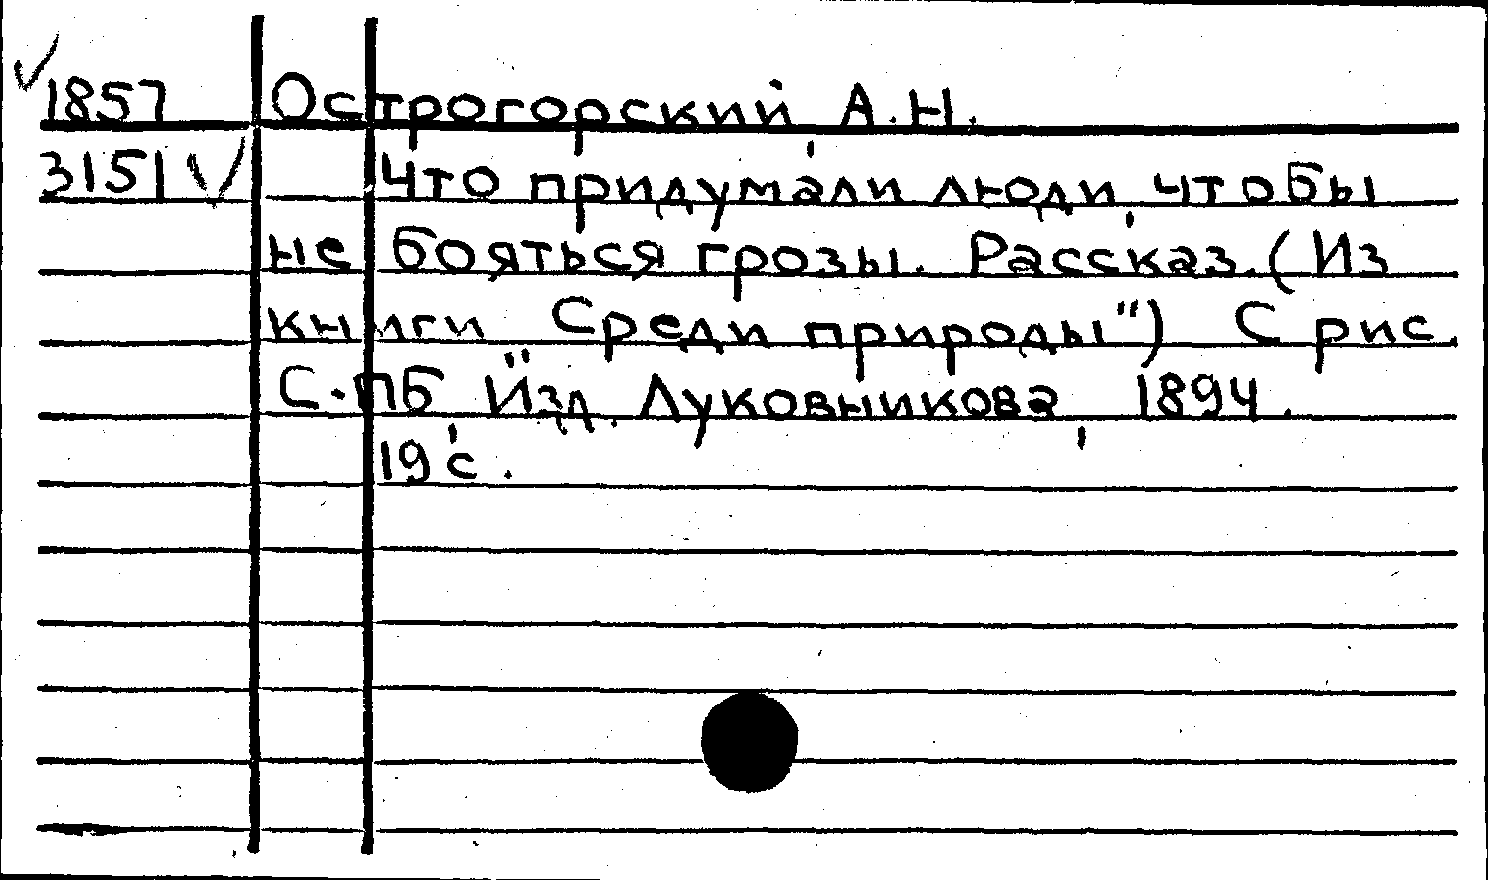 1857 Острогорский А.Н.
3151 Что придумали люди, чтобы
не бояться грозы. Рассказ. (Из
книги „Среди природы") С рис.
С.-ПБ, Изд. Луковникова, 1894.
19 с.